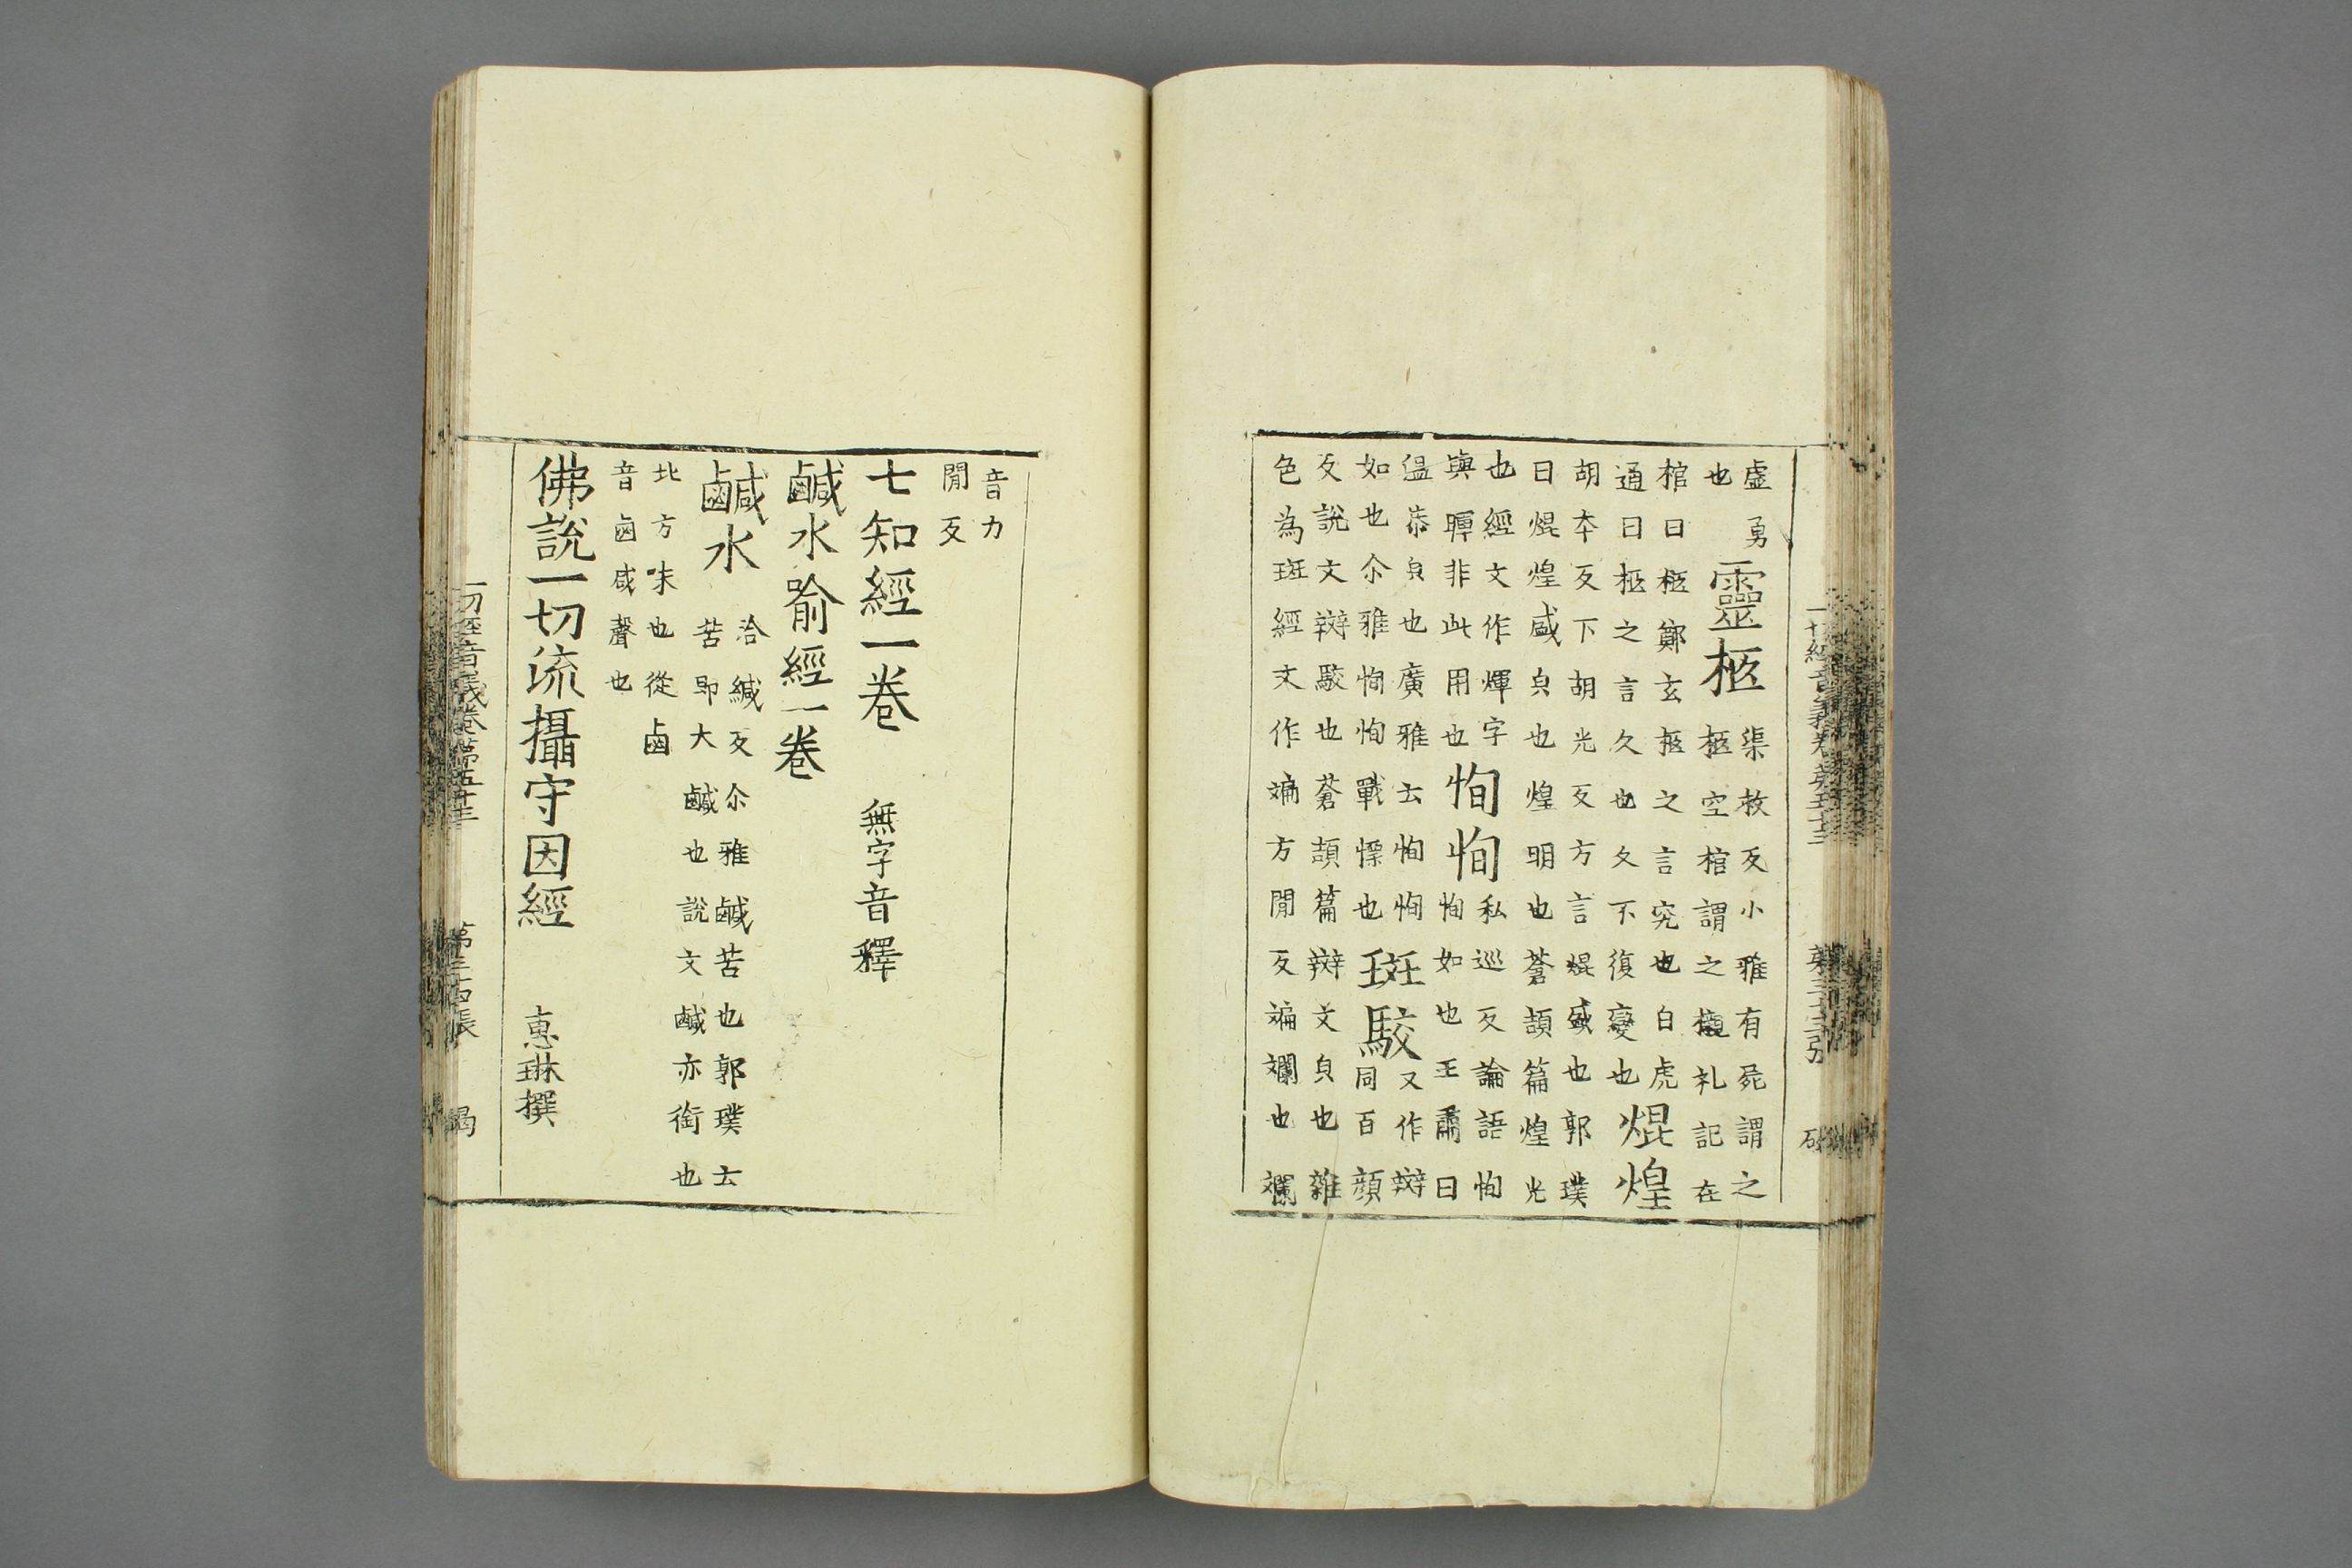 虛勇
也
靈柩
渠救反小雅有死謂之
柩空棺謂之櫬礼記在
棺曰柩鄭玄柩之言究也白虎
通曰柩之言久也久不復變也
焜煌
胡本反下胡光反方言焜盛也郭璞
曰焜煌盛皃也煌明也蒼頡篇煌光
也經文作煇字
與暉非此用也
恂恂
私巡反論語恂
恂如也王肅曰
温恭皃也廣雅云恂恂
如也尒雅恂恂戰慄也
斑駮
又作辬
同百顔
反說文辬駮也蒼頡篇辬文皃也雜
色為斑經文作斒方閒反斒斕也斕
音力
閒反
七知經一卷 無字音釋
鹹水喻經一卷
鹹水
洽緘反尒雅鹹苦也郭璞云
苦即大鹹也說文鹹亦銜也
北方味也從鹵
音鹵咸聲也
佛說一切流攝守因經 惠琳撰
一切經音義卷第五十三